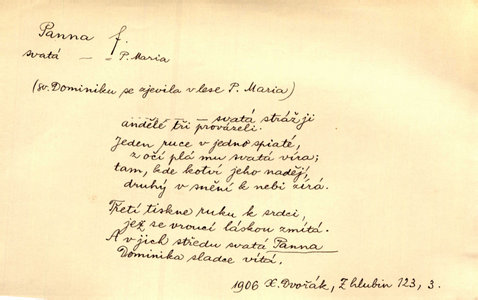 Panna f.
svatá — = P. Maria
(sv. Dominiku se zjevila v lese P. Maria)
— svatá stráž ji
andělé tři provázeli.
Jeden ruce v jedno spiaté,
z očí plá mu svatá víra;
tam, kde kotví jeho naději,
druhý v snění k nebi zírá.
Třetí tiskne ruku k srdci,
jež se vroucí láskou zmítá.
A v jich středu svatá Panna
Dominika sladce vítá.
1906 X. Dvořák, Z hlubin 123, 3.